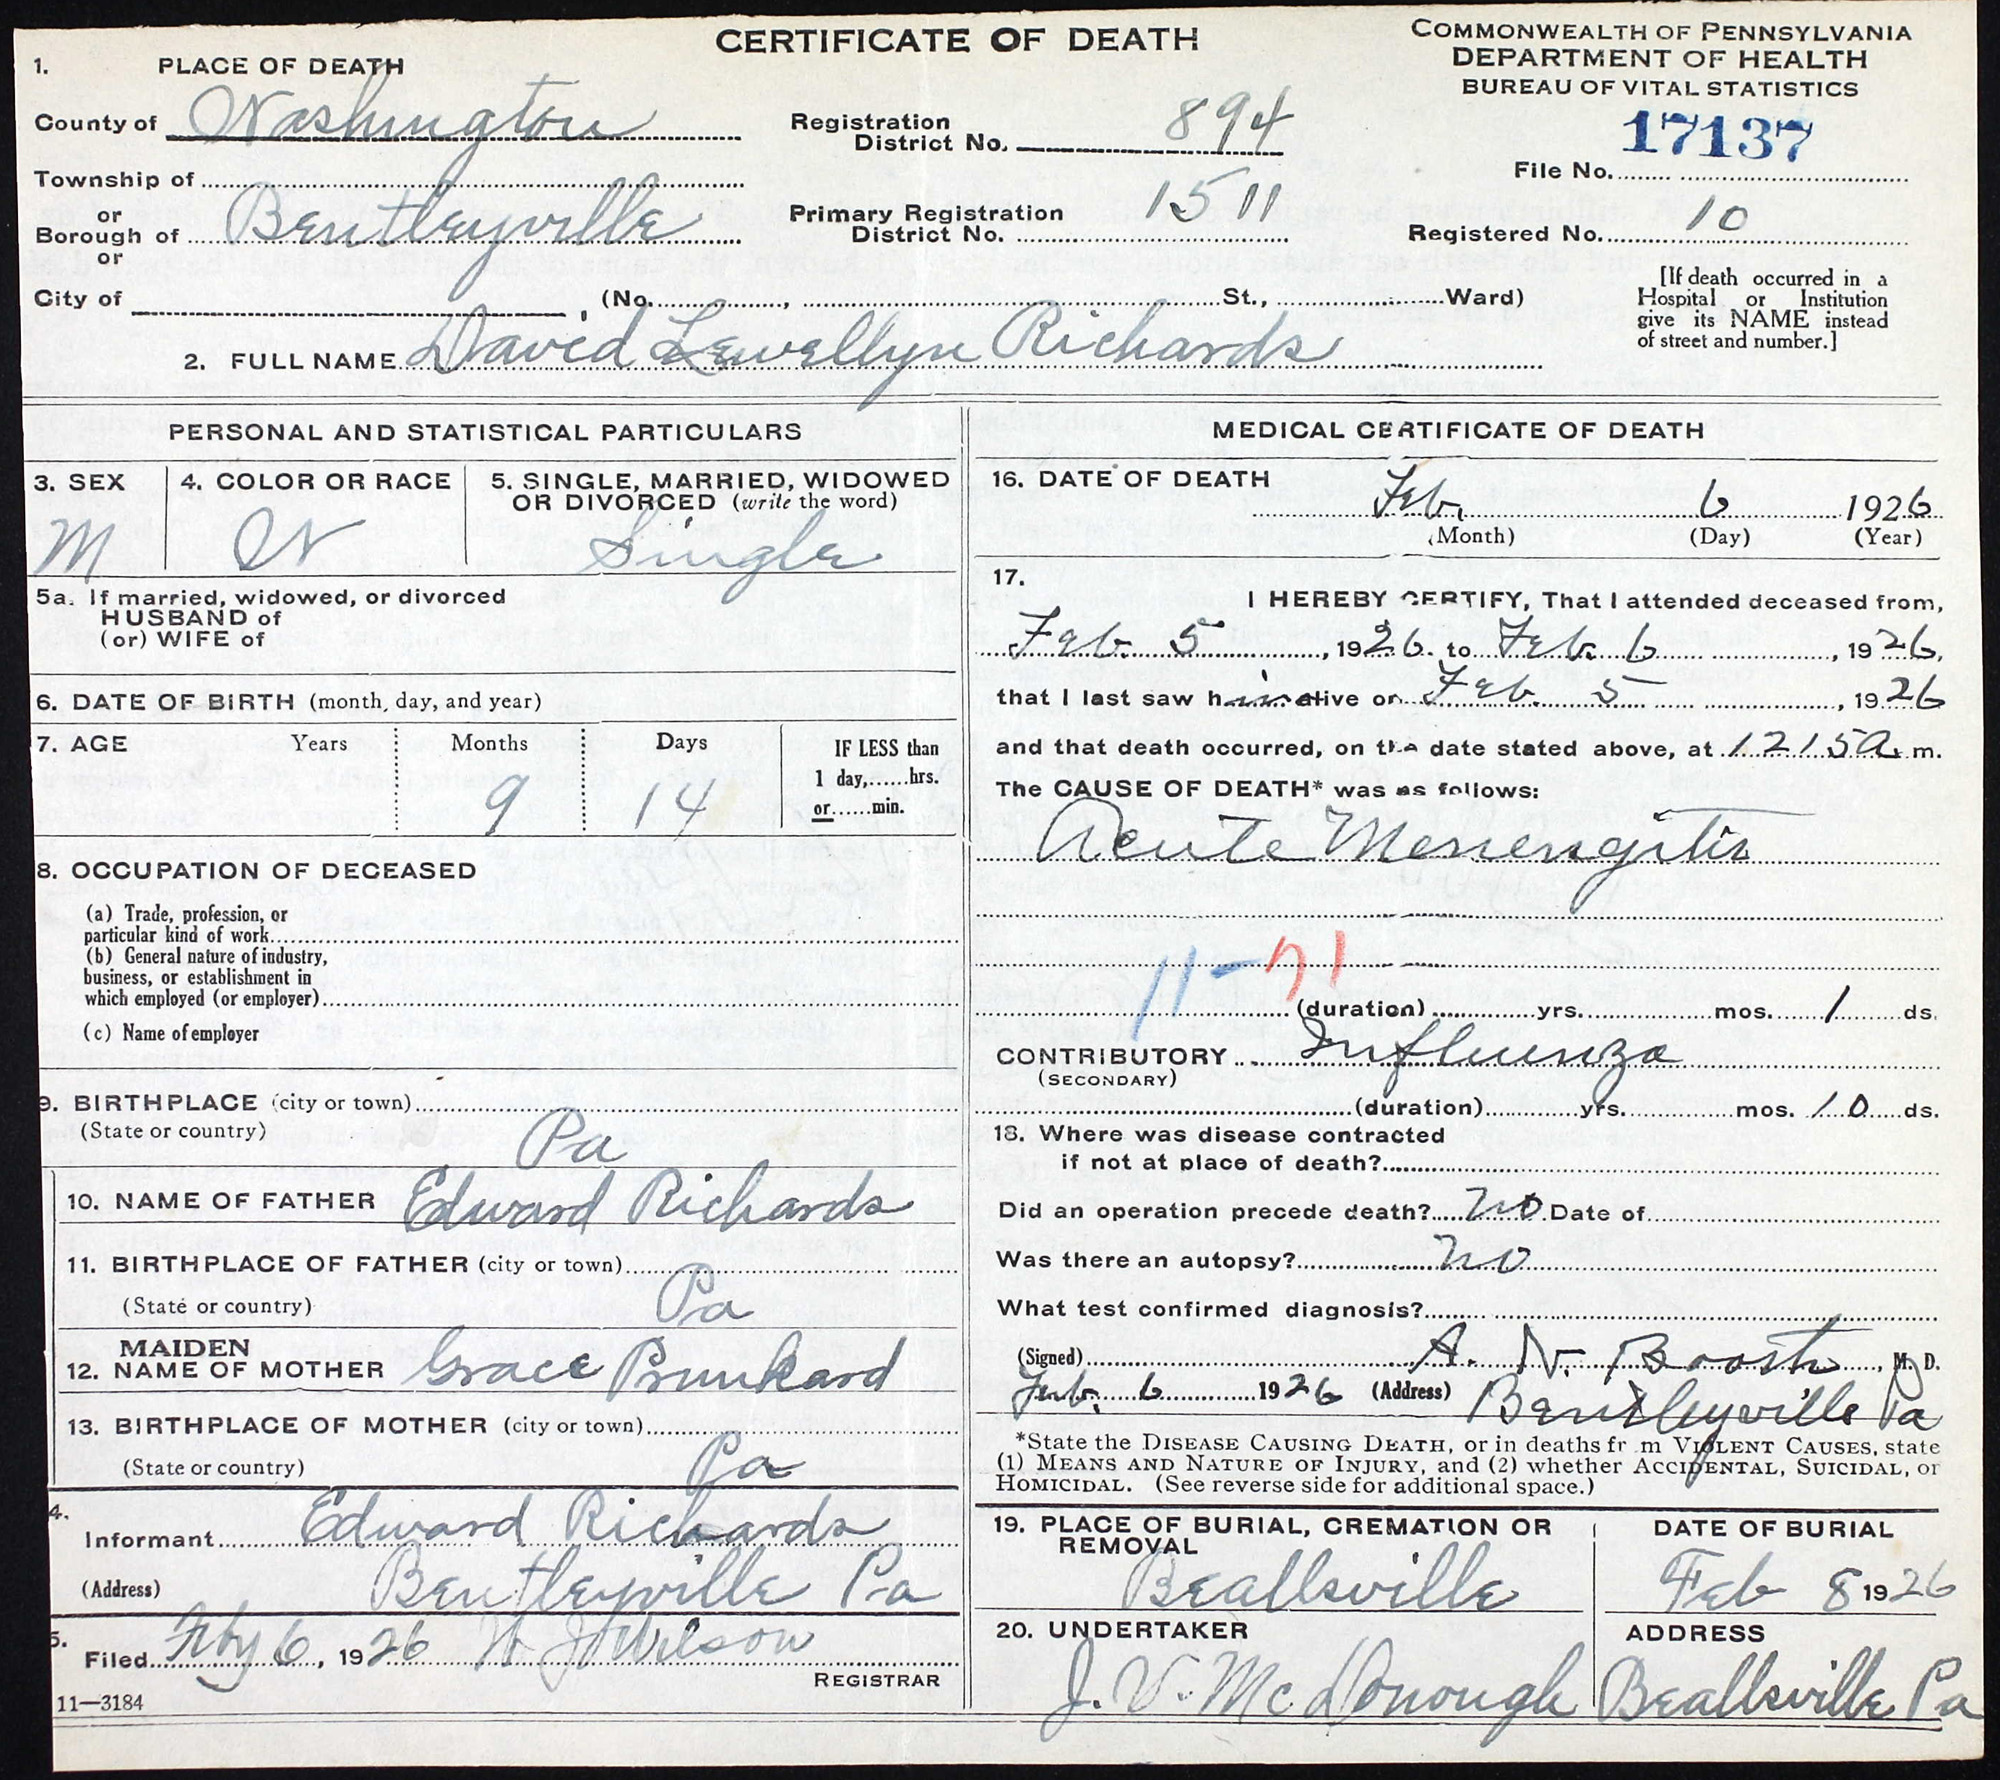 CERTIFICATE OF DEATH
COMMONWEALTH OF PENNSYLVANIA
DEPARTMENT OF HEALTH
BUREAU OF VITAL STATISTICS
1. PLACE OF DEATH
County of Washington
Registration District No. 894
17137
File No.
Township of
or
Borough of Bentleyville
or
Primary Registration District No. 1511
Registered No. 10
City of , (No. , St., Ward)
[If death occurred in a
Hospital or Institution
give its NAME instead
of street and number.]
2. FULL NAME David Lewellyn Richards
PERSONAL AND STATISTICAL PARTICULARS
3. SEX
M
4. COLOR OR RACE
W
5. SINGLE, MARRIED, WIDOWED
OR DIVORCED (write the word)
Single
5a. If married, widowed, or divorced
HUSBAND of
(or) WIFE of
6. DATE OF BIRTH (month, day, and year)
7. AGE Years Months Days
9 14
IF LESS than
1 day,......hrs.
or......min.
8. OCCUPATION OF DECEASED
(a) Trade, profession, or
particular kind of work
(b) General nature of industry,
business, or establishment in
which employed (or employer)
(c) Name of employer
9. BIRTHPLACE (city or town)
(State or country) Pa
10. NAME OF FATHER Edward Richards
11. BIRTHPLACE OF FATHER (city or town)
(State or country) Pa
MAIDEN
12. NAME OF MOTHER Grace Prunkard
13. BIRTHPLACE OF MOTHER (city or town)
(State or country) Pa
4.
Informant Edward Richards
(Address) Bentleyville Pa
5.
Filed Feby 6, 1926 W J Wilson
REGISTRAR
11—3184
MEDICAL CERTIFICATE OF DEATH
16. DATE OF DEATH
Feb. 6 1926
(Month) (Day) (Year)
17.
I HEREBY CERTIFY, That I attended deceased from,
Feb. 5, 1926. to Feb. 6, 1926,
that I last saw him alive on Feb. 5, 1926
and that death occurred, on the date stated above, at 1215 a. m.
The CAUSE OF DEATH* was as follows:
Acute Menengitis
11-71
(duration) yrs. mos. 1 ds.
CONTRIBUTORY Influenza
(SECONDARY)
(duration) yrs. mos. 10 ds.
18. Where was disease contracted
if not at place of death?
Did an operation precede death? no Date of
Was there an autopsy? no
What test confirmed diagnosis?
(Signed) A. N. Booth, M. D.
Feb. 6 1926 (Address) Bentleyville Pa
*State the DISEASE CAUSING DEATH, or in deaths fr m VIOLENT CAUSES, state
(1) MEANS AND NATURE OF INJURY, and (2) whether ACCIDENTAL, SUICIDAL, or
HOMICIDAL. (See reverse side for additional space.)
19. PLACE OF BURIAL, CREMATION OR
REMOVAL
Beallsville
DATE OF BURIAL
Feb 8 1926
20. UNDERTAKER
J. V. McDonough
ADDRESS
Beallsville Pa